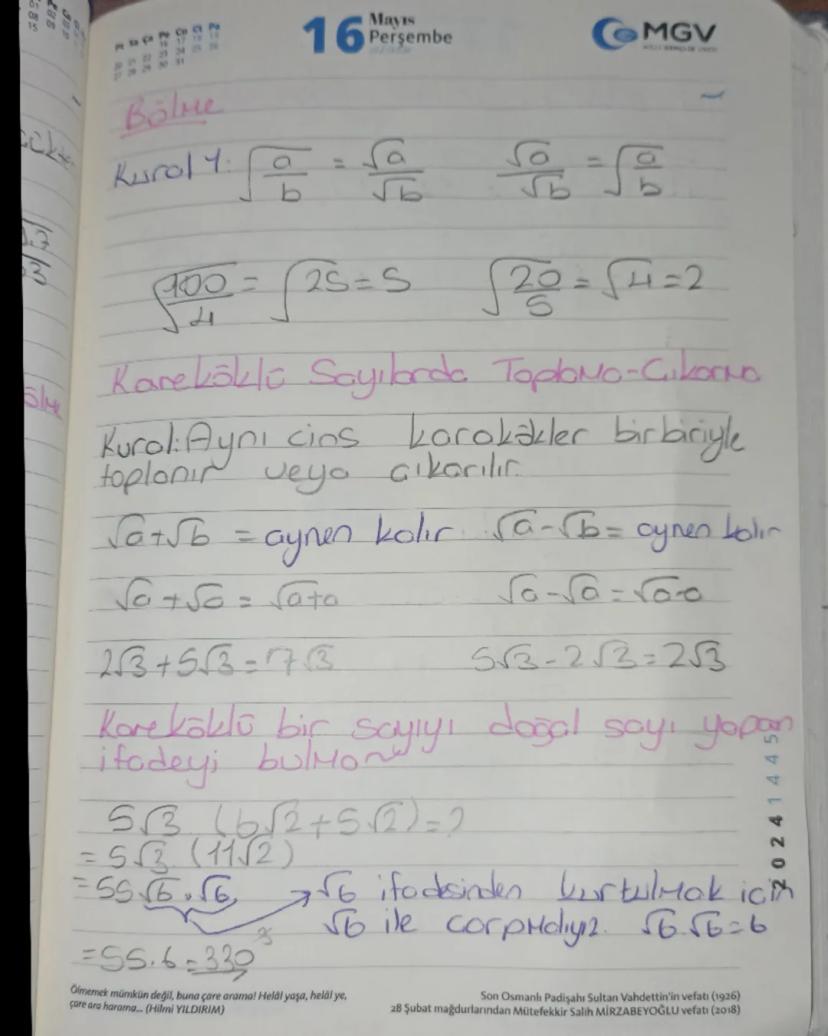 16 Mayıs Perşembe
MGV
Bölme
Kural 1: √(a/b) = √a/√b √a/√b = √(a/b)
√(100/4) = √25 = 5 √(20/5) = √4 = 2
Kareköklü Sayılarda Toplama-Çıkarma
Kural: Aynı cins karekökler birbiriyle
toplanır veya çıkarılır.
√a+√b = aynen kalır. √a-√b = aynen kalır
√a+√a = √a+a √a-√a = √a-a
2√3+5√3=7√3 5√3-2√3=2√3
Kareköklü bir sayıyı doğal sayı yapan
ifadeyi bulma
5√3 (6√2+5√2)=?
=5√3 (11√2)
=55√6.√6 → √6 ifadesinden kurtulmak için
√6 ile çarpmalıyız. √6.√6=6
=55.6=330
2024 1445
Ölmemek mümkün değil, buna çare arama! Helâl yaşa, helâl ye,
çare ara harama... (Hilmi YILDIRIM)
Son Osmanlı Padişahı Sultan Vahdettin'in vefatı (1926)
28 Şubat mağdurlarından Mütefekkir Salih MİRZABEYOĞLU vefatı (2018)